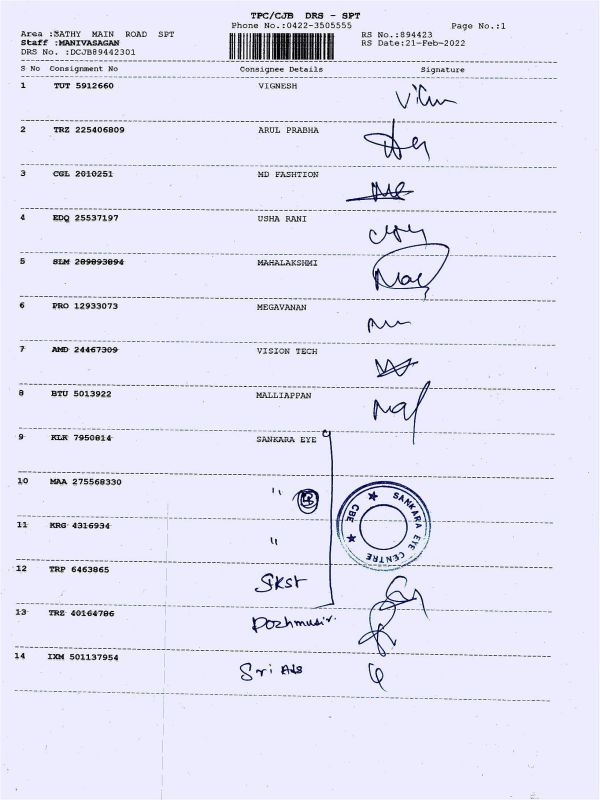 TPC/CJB DRS - SPT
Phone No.:0422-3505555 Page No.:1
Area :SATHY MAIN ROAD SPT RS No.:894423
Staff :MANIVASAGAN RS Date:21-Feb-2022
DRS No. :DCJB89442301
S No Consignment No Consignee Details Signature
1 TUT 5912660 VIGNESH
2 TRZ 225406809 ARUL PRABHA
3 CGL 2010251 MD FASHTION
4 EDQ 25537197 USHA RANI
5 SLM 289893894 MAHALAKSHMI
6 PRO 12933073 MEGAVANAN
7 AMD 24467309 VISION TECH
8 BTU 5013922 MALLIAPPAN
9 KLK 7950814 SANKARA EYE
10 MAA 275568330 "
SANKARA EYE CENTRE CBE
11 KRG 4316934 "
12 TRP 6463865 SKST
13 TRZ 40164786
14 IXM 501137954 Sri Ads